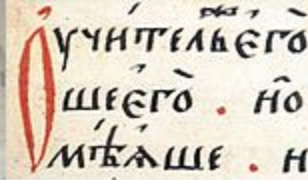 Оучи́тельѐго̀
шеѐго̀ . но̑
имѣꙗше . н